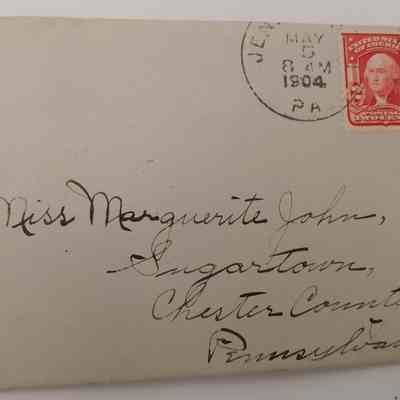 JEN
MAY
5
8 AM
1904
PA
UNITED STATES
OF AMERICA
POSTAGE
TWO CENTS
Miss Marguerite John,
Sugartown,
Chester County
Pennsylvan